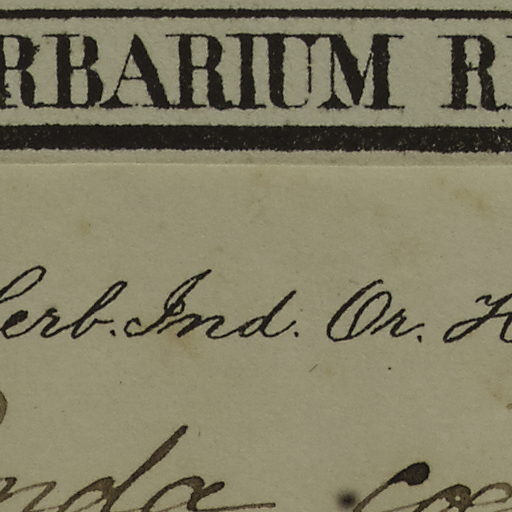 RBARIUM R
Herb. Ind. Or. H
nda coe